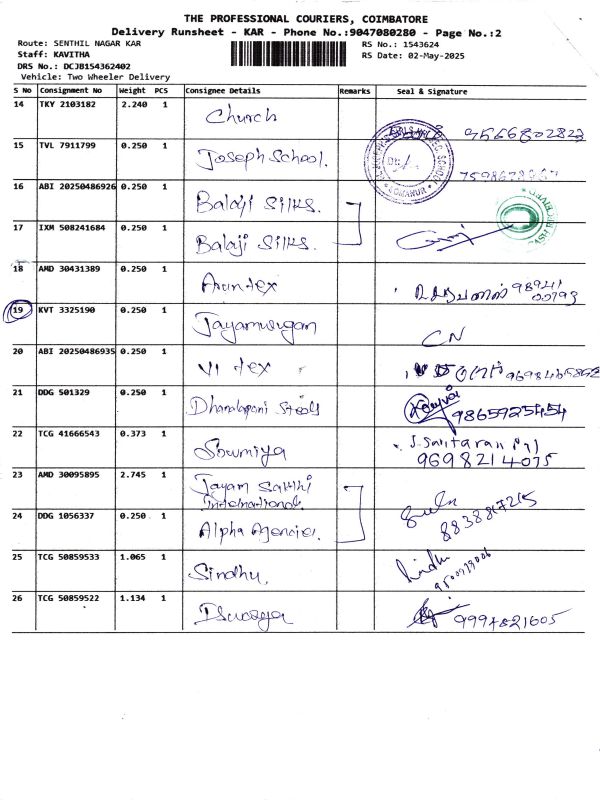 THE PROFESSIONAL COURIERS, COIMBATORE
Delivery Runsheet - KAR - Phone No.:9047080280 - Page No.:2
Route: SENTHIL NAGAR KAR
Staff: KAVITHA
DRS No.: DCJB154362402
Vehicle: Two Wheeler Delivery
RS No.: 1543624
RS Date: 02-May-2025
S No Consignment No Weight PCS Consignee Details Remarks Seal & Signature
14 TKY 2103182 2.240 1 Church 9566802823
15 TVL 7911799 0.250 1 Joseph School. SOMANUR
16 ABI 20250486926 0.250 1 Balaji Silks.
17 IXM 508241684 0.250 1 Balaji Silks.
18 AMD 30431389 0.250 1 Arun tex
19 KVT 3325190 0.250 1 Jayamurugan CN
20 ABI 20250486935 0.250 1 VI tex
21 DDG 501329 0.250 1 Dhandapani Steels 9865925454
22 TCG 41666543 0.373 1 Sowmiya 9698214075
23 AMD 30095895 2.745 1 Jayam Sakthi International
24 DDG 1056337 0.250 1 Alpha Agencies. 8838867215
25 TCG 50859533 1.065 1 Sindhu.
26 TCG 50859522 1.134 1 9994821605